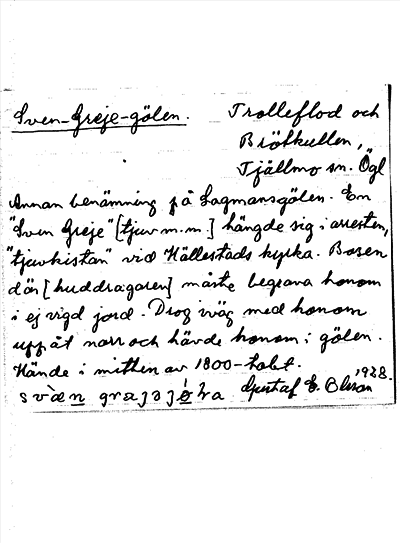 Sven-Greje-gölen.
Trolleflod och
Brötkullen,
Tjällmo sn. Ögl
Annan benämning på Lagmansgölen. En
"Sven Greje" [tjuv m.m.] hängde sig i arresten,
"tjuvkistan" vid Hällestads kyrka. Basen
där [huddragaren] måste begrava honom
i ej vigd jord. Drog iväg med honom
uppåt norr och hävde honom i gölen.
Hände i mitten av 1800-talet.
Gustaf E. Olsson 1928.